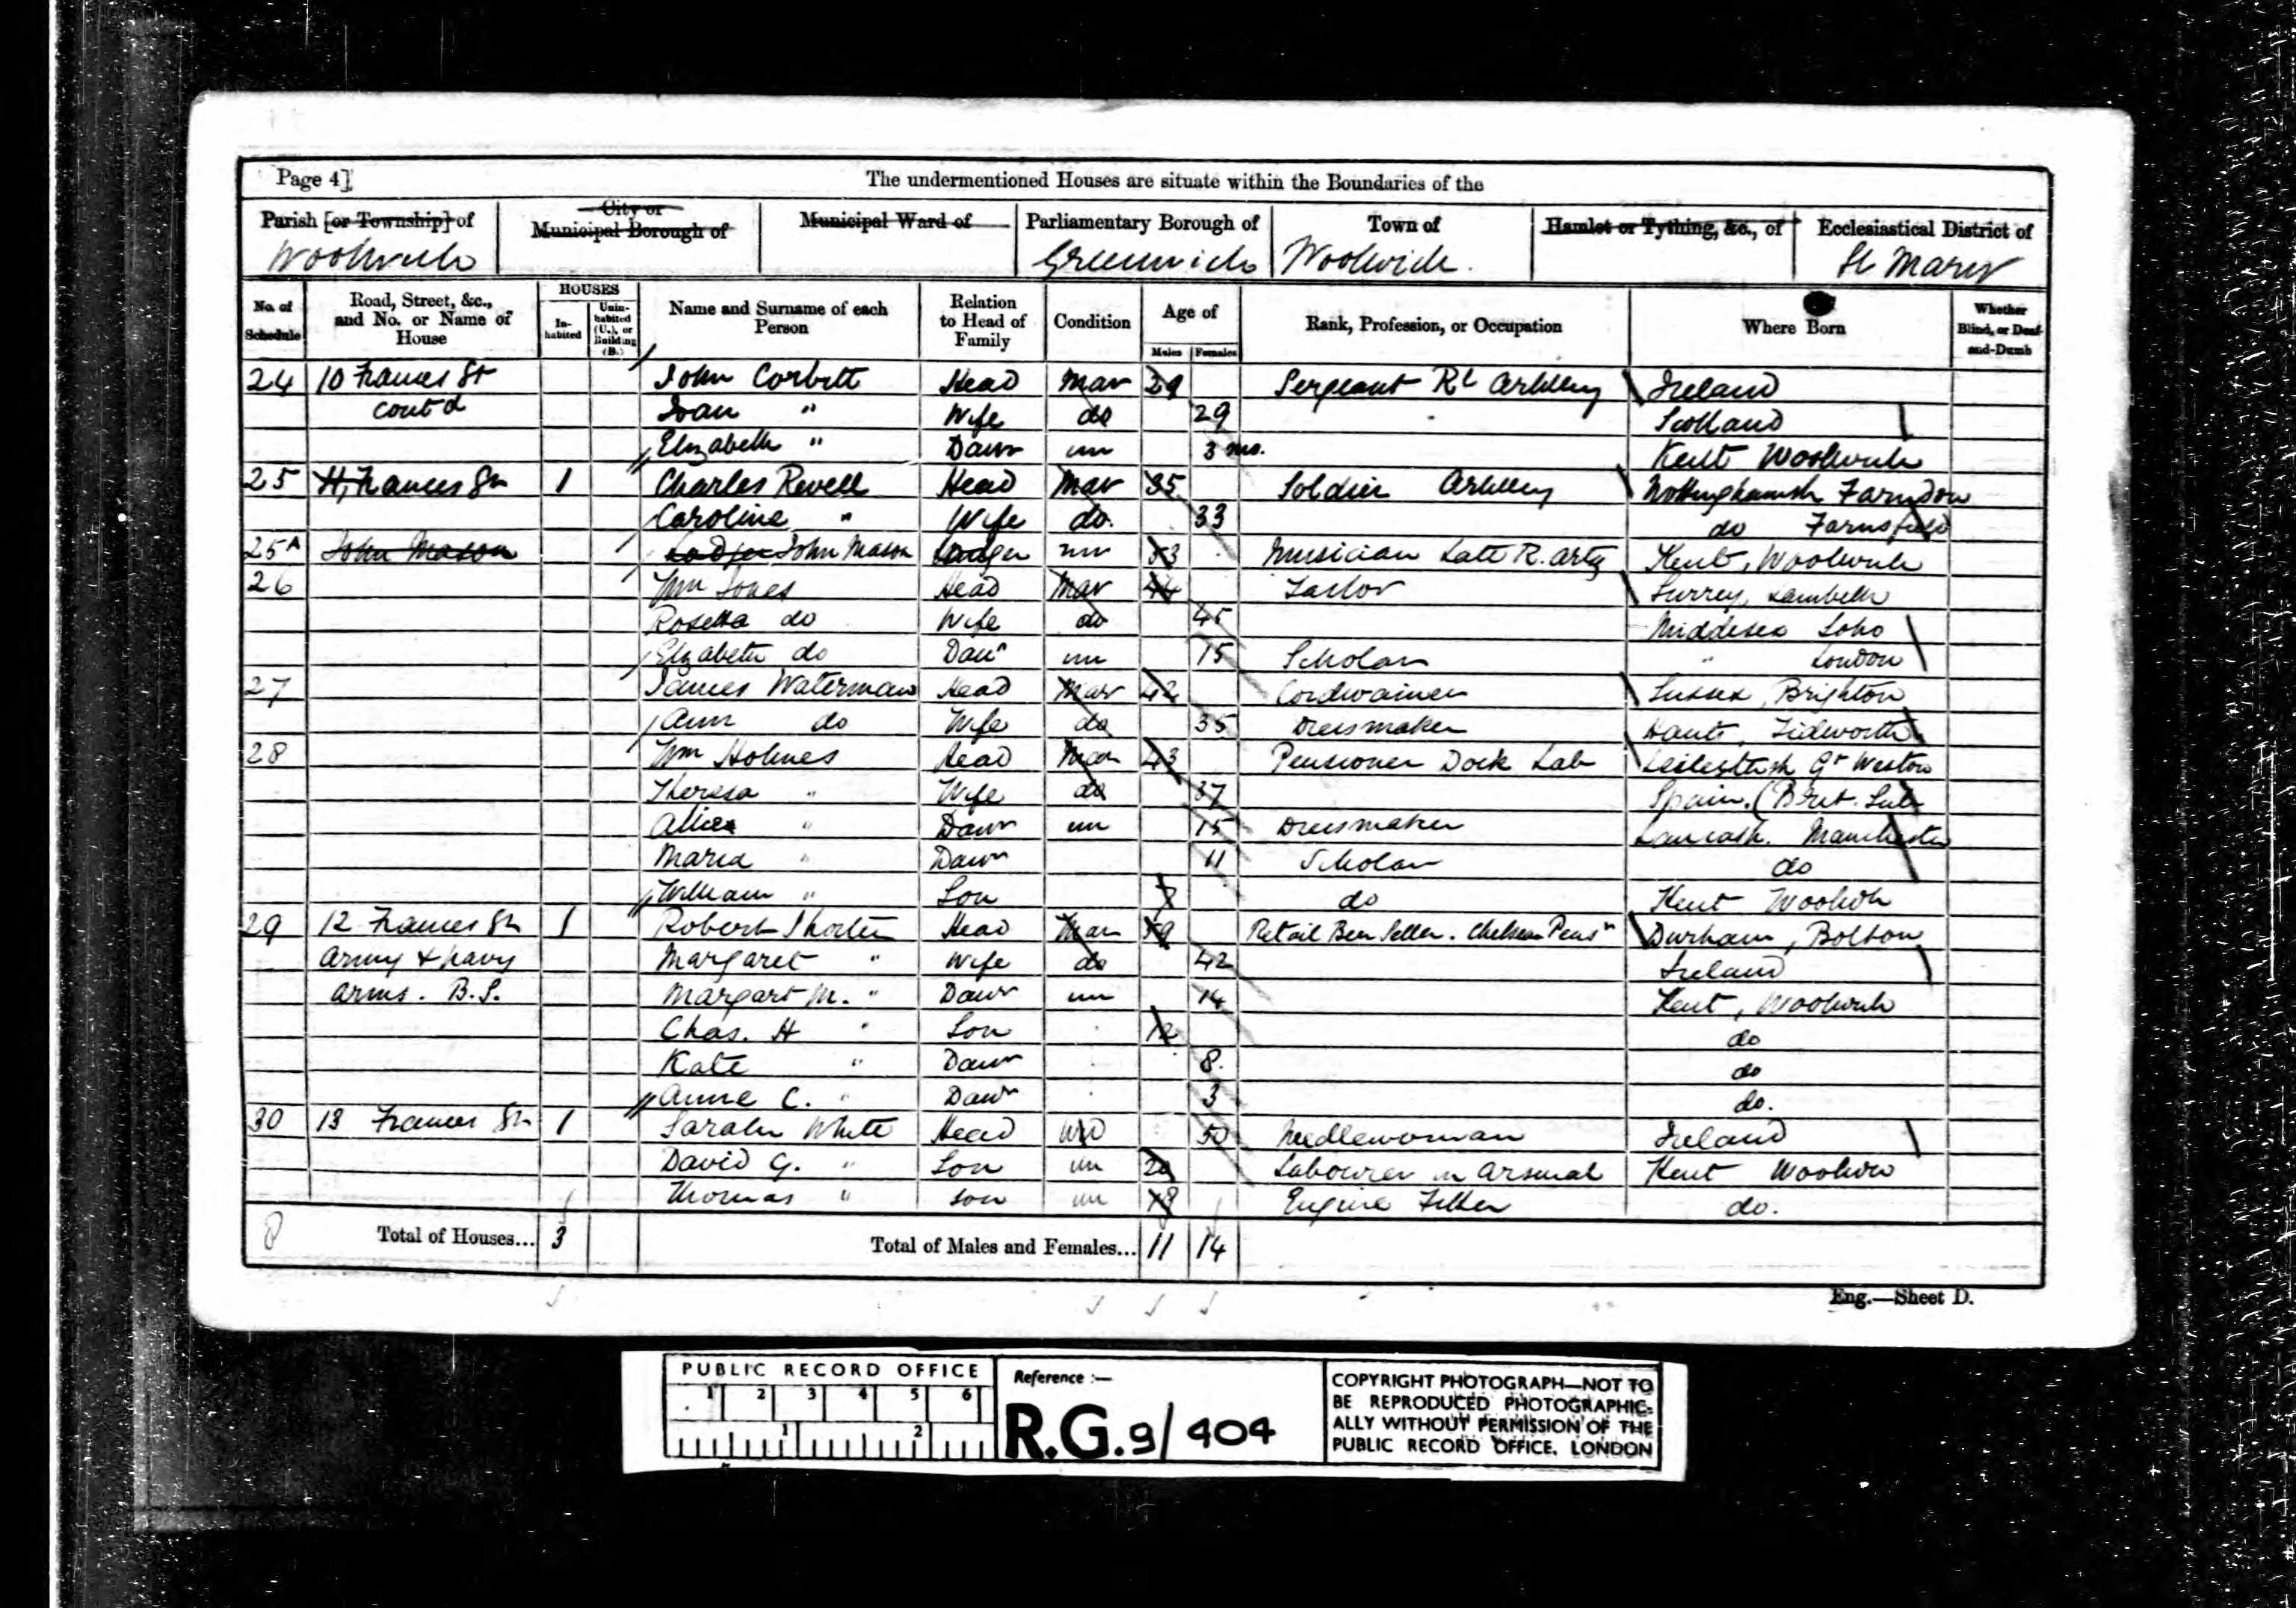 Page 4] The undermentioned Houses are situate within the Boundaries of the
Parish [or Township] of City or Municipal Borough of Municipal Ward of Parliamentary Borough of Town of Hamlet or Tything, &c., of Ecclesiastical District of
Woolwich Greenwich Woolwich. St Marys
No. of Schedule Road, Street, &c., and No. or Name of House HOUSES Inhabited Uninhabited (U.), or Building (B.) Name and Surname of each Person Relation to Head of Family Condition Age of Males Females Rank, Profession, or Occupation Where Born Whether Blind, or Deaf-and-Dumb
24 10 Frances St John Corbett Head Mar 29 Sergeant Rl Artillery Ireland
contd " Wife do 29 Scotland
Elizabeth " Daur un 3 mo. Kent Woolwich
25 11, Frances St 1 Charles Revell Head Mar 35 Soldier Artillery Nottinghamsh Farndon
Caroline " Wife do. 33 do Farnsfield
25A John Mason Lodger John Mason Lodger un Musician Late R. Arty Kent, Woolwich
26 Wm Jones Head Mar 44 Tailor Surrey, Lambeth
Rosetta do Wife do 45 Middlesex Soho
Elizabeth do Daur un 15 Scholar " London
27 James Waterman Head Mar 42 Cordwainer Sussex, Brighton
Ann do Wife do 35 Dressmaker Hants, Tidworth
28 Wm Holmes Head Mar 43 Pensioner Dock Lab Leicestersh Gt Weston
Theresa " Wife do 37 Spain. (Brit. Sub
Alice " Daur un 15 Dressmaker Lancash. Manchester
Maria " Daur 11 Scholar do
William " Son 7 do Kent Woolwh
29 12 Frances St 1 Robert Shorten Head Mar Retail Beer Seller. Chelsea Pensr Durham, Bolton
Army & Navy Margaret " Wife do 42 Ireland
Arms. B.S. Margart M. " Daur un 14 Kent, Woolwich
Chas. H " Son 12 do
Kate " Daur 8. do
Anne C. " Daur 3 do.
30 13 Frances St 1 Sarah White Head Wid 50 Needlewoman Ireland
David G. " Son un 20 Labourer in Arsenal Kent Woolwh
Thomas " Son un 18 Engine Fitter do.
Total of Houses... 3 Total of Males and Females... 11 14
Eng.—Sheet D.
PUBLIC RECORD OFFICE
1 2 3 4 5 6
1 2
Reference :—
R.G.9/404
COPYRIGHT PHOTOGRAPH—NOT TO
BE REPRODUCED PHOTOGRAPHIC-
ALLY WITHOUT PERMISSION OF THE
PUBLIC RECORD OFFICE, LONDON